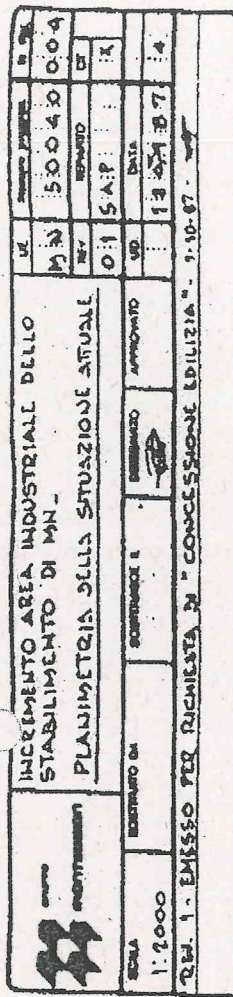 GRUPPO
MONTEDISON
INCREMENTO AREA INDUSTRIALE DELLO
STABILIMENTO DI MN_
PLANIMETRIA DELLA SITUAZIONE ATTUALE
UE
MN
50040
004
REV
01
REPARTO
SAP
CT
X
SCALA
1:2000
SOSTITUITO DA
SOSTITUISCE IL
DISEGNATO
APPROVATO
UD
DATA
4
REV. 1 - EMESSO PER RICHIESTA DI "CONCESSIONE EDILIZIA" - 9-10-87 -